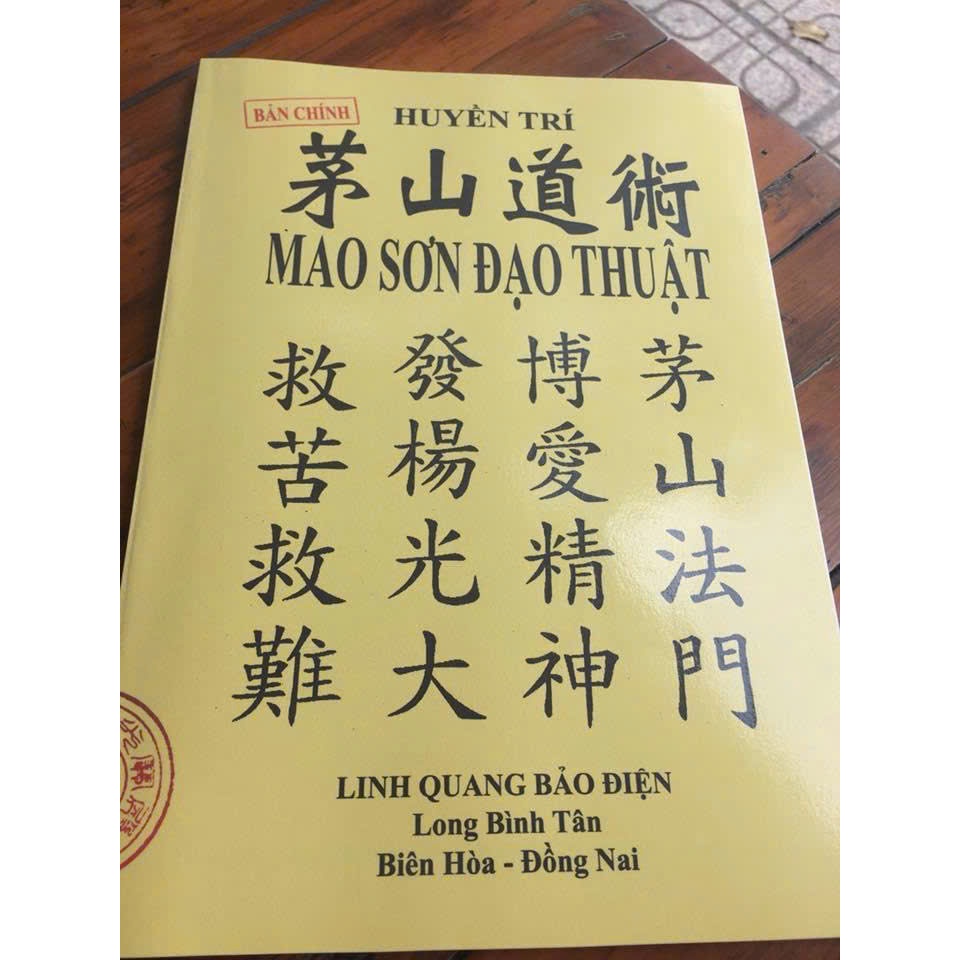 BẢN CHÍNH
HUYỀN TRÍ
茅山道術
MAO SƠN ĐẠO THUẬT
茅山法門
博愛精神
發楊光大
救苦救難
LINH QUANG BẢO ĐIỆN
Long Bình Tân
Biên Hòa - Đồng Nai